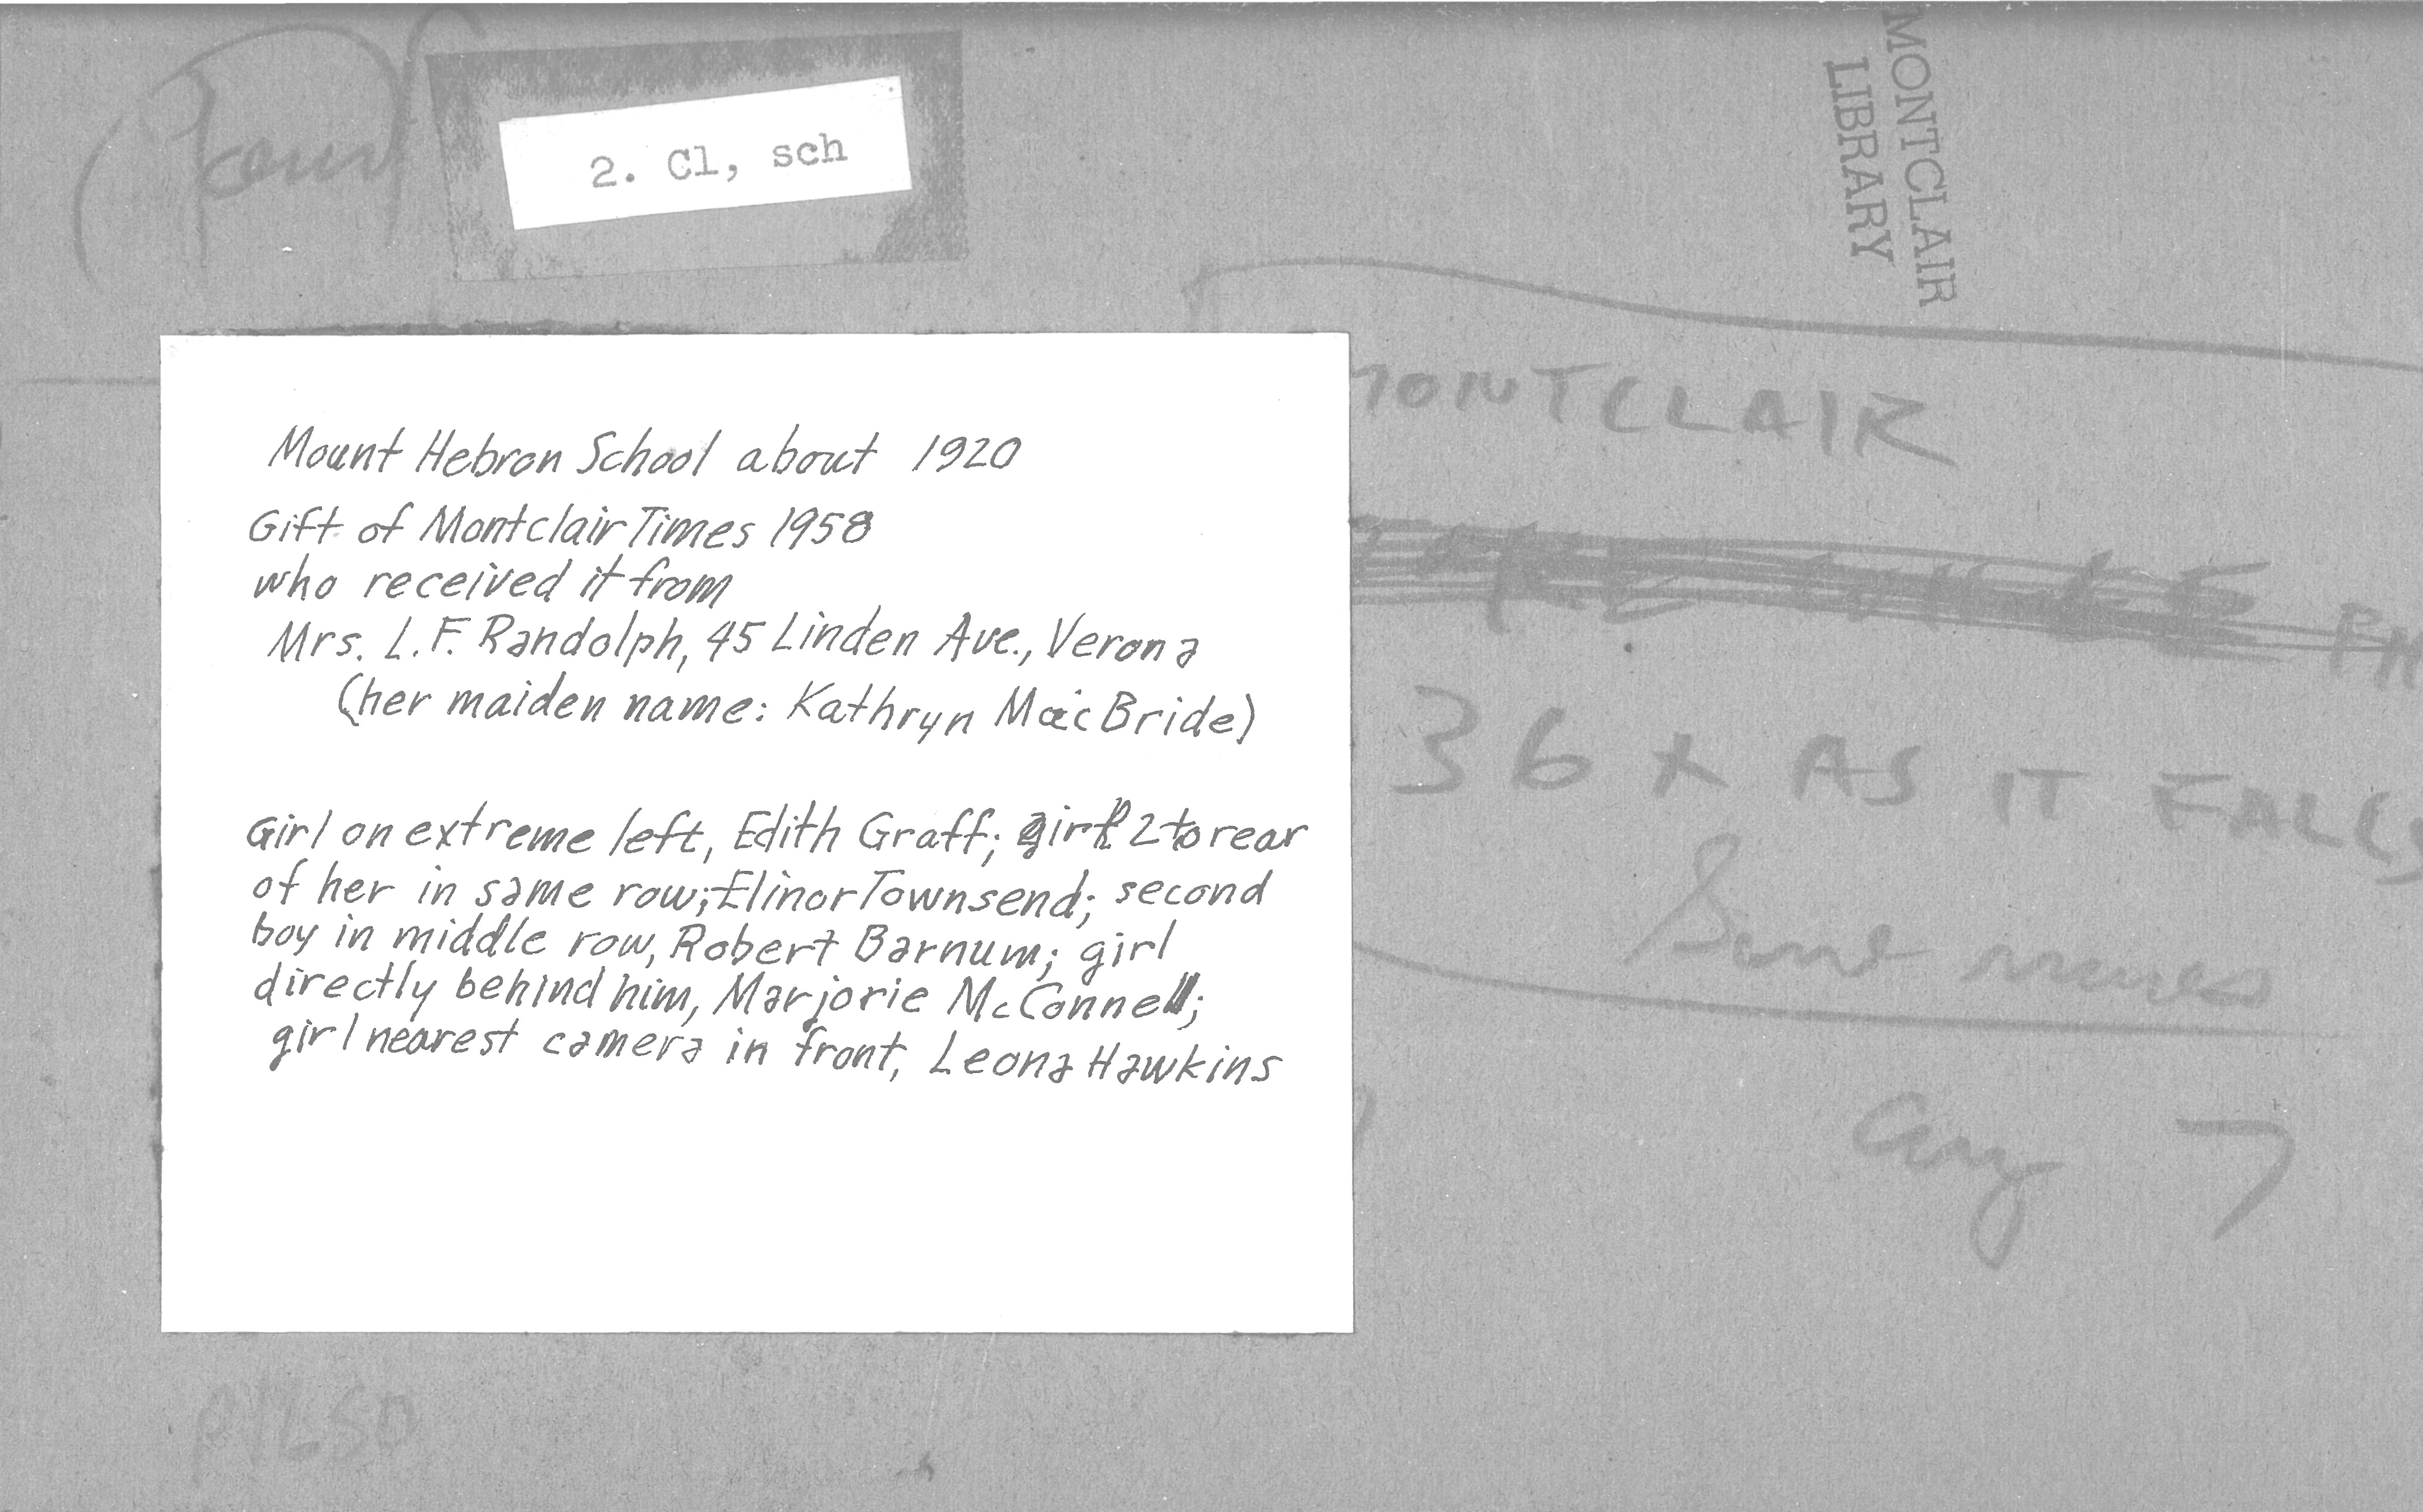 2. Cl, sch
MONTCLAIR
LIBRARY
Mount Hebron School about 1920
Gift of Montclair Times 1958
who received it from
Mrs. L. F. Randolph, 45 Linden Ave., Verona
(her maiden name: Kathryn MacBride)
Girl on extreme left, Edith Graff; girl 2 to rear
of her in same row; Elinor Townsend; second
boy in middle row, Robert Barnum; girl
directly behind him, Marjorie McConnell;
girl nearest camera in front, Leona Hawkins
MONTCLAIR
36 x AS IT FALLS
7